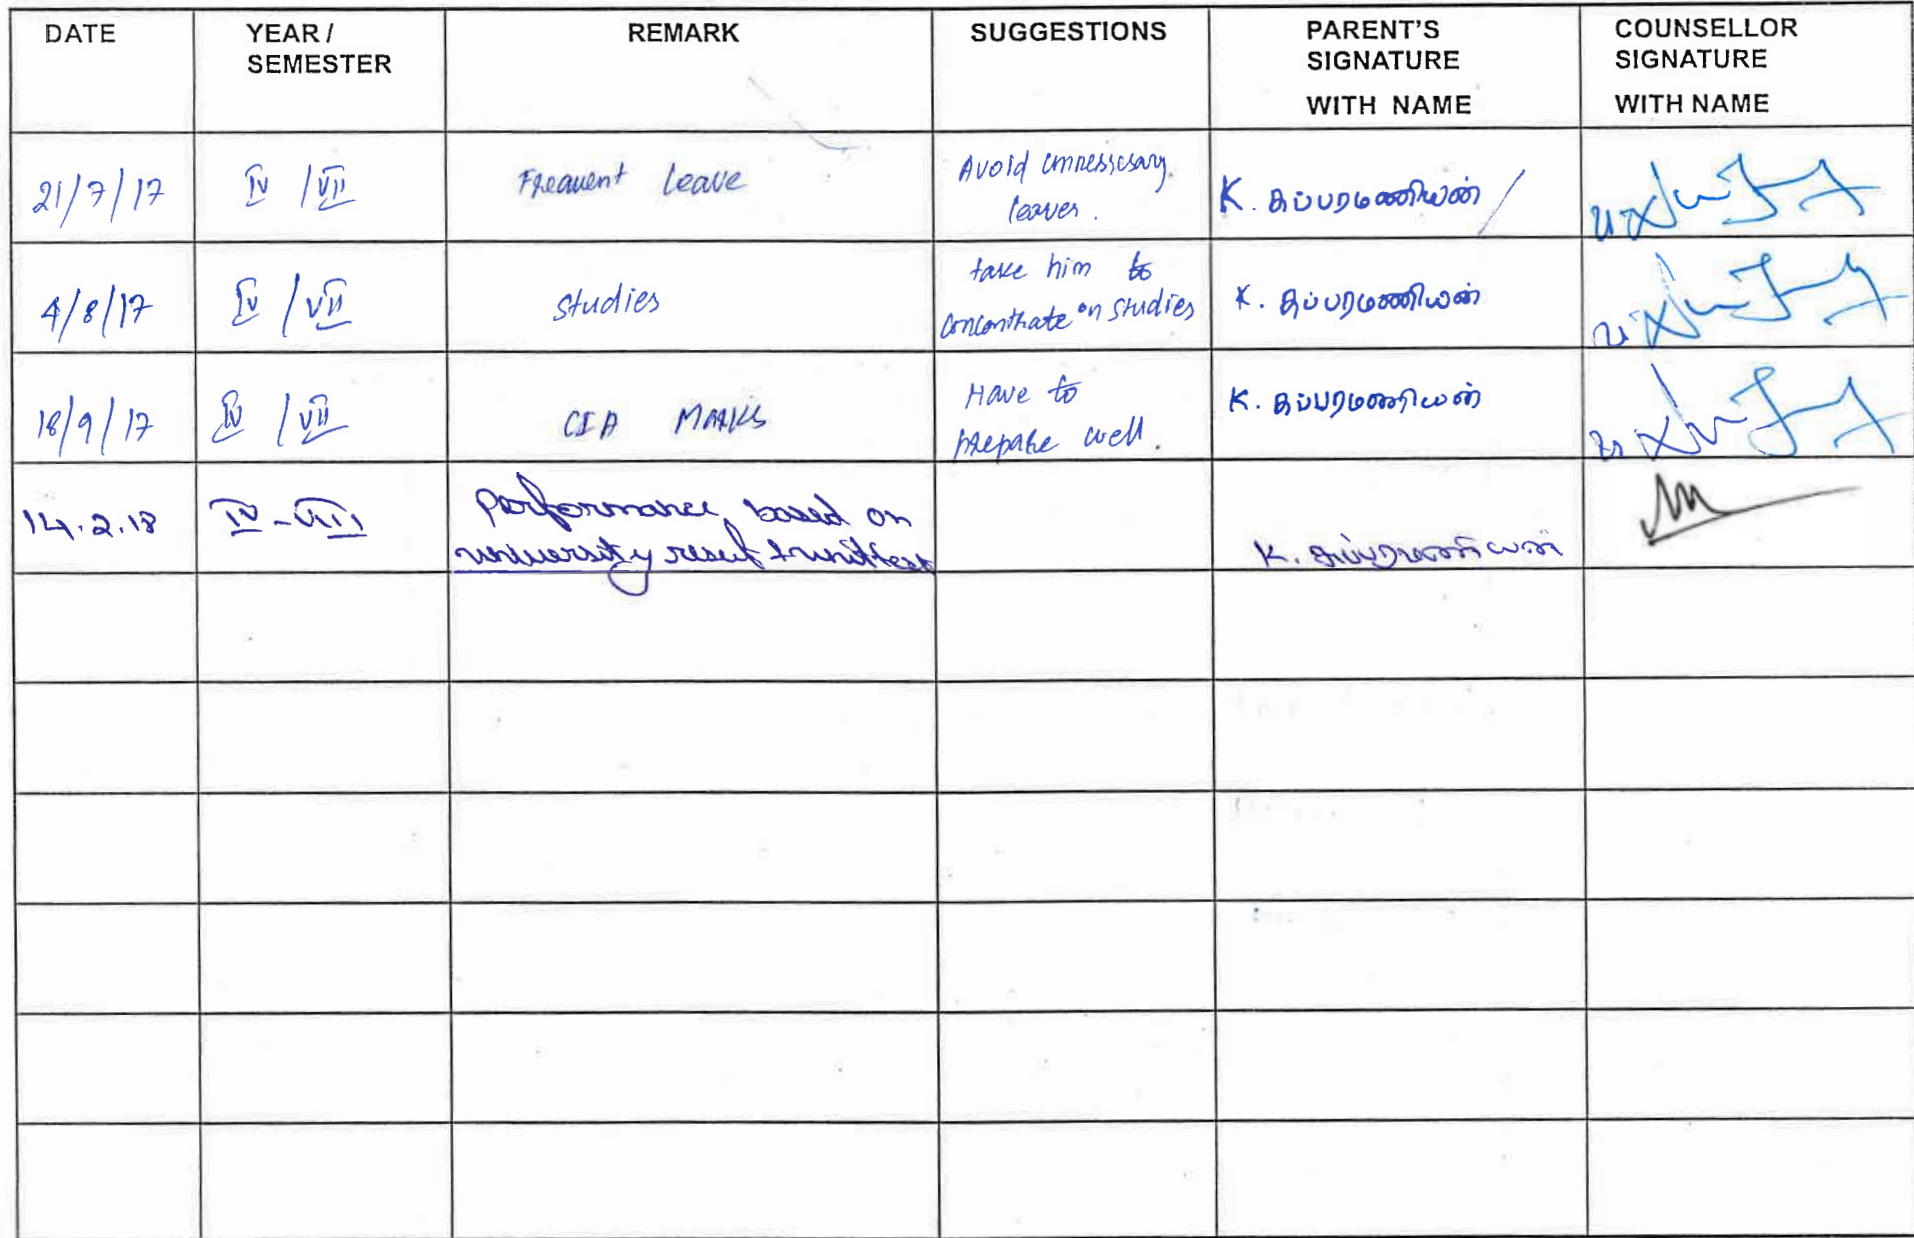 DATE
YEAR /
SEMESTER
REMARK
SUGGESTIONS
PARENT'S
SIGNATURE
WITH NAME
COUNSELLOR
SIGNATURE
WITH NAME
21/7/17
IV / VII
Frequent leave
Avoid unnessicsary
leaves.
K. சுப்பரமணியன்
4/8/17
IV / VII
Studies
take him to
concentrate on studies
K. சுப்பரமணியன்
18/9/17
IV / VII
CIA Marks
Have to
prepare well.
K. சுப்பரமணியன்
14.2.18
IV - VIII
Performance, based on
university result & unit test
K. சுப்பரமணியன்